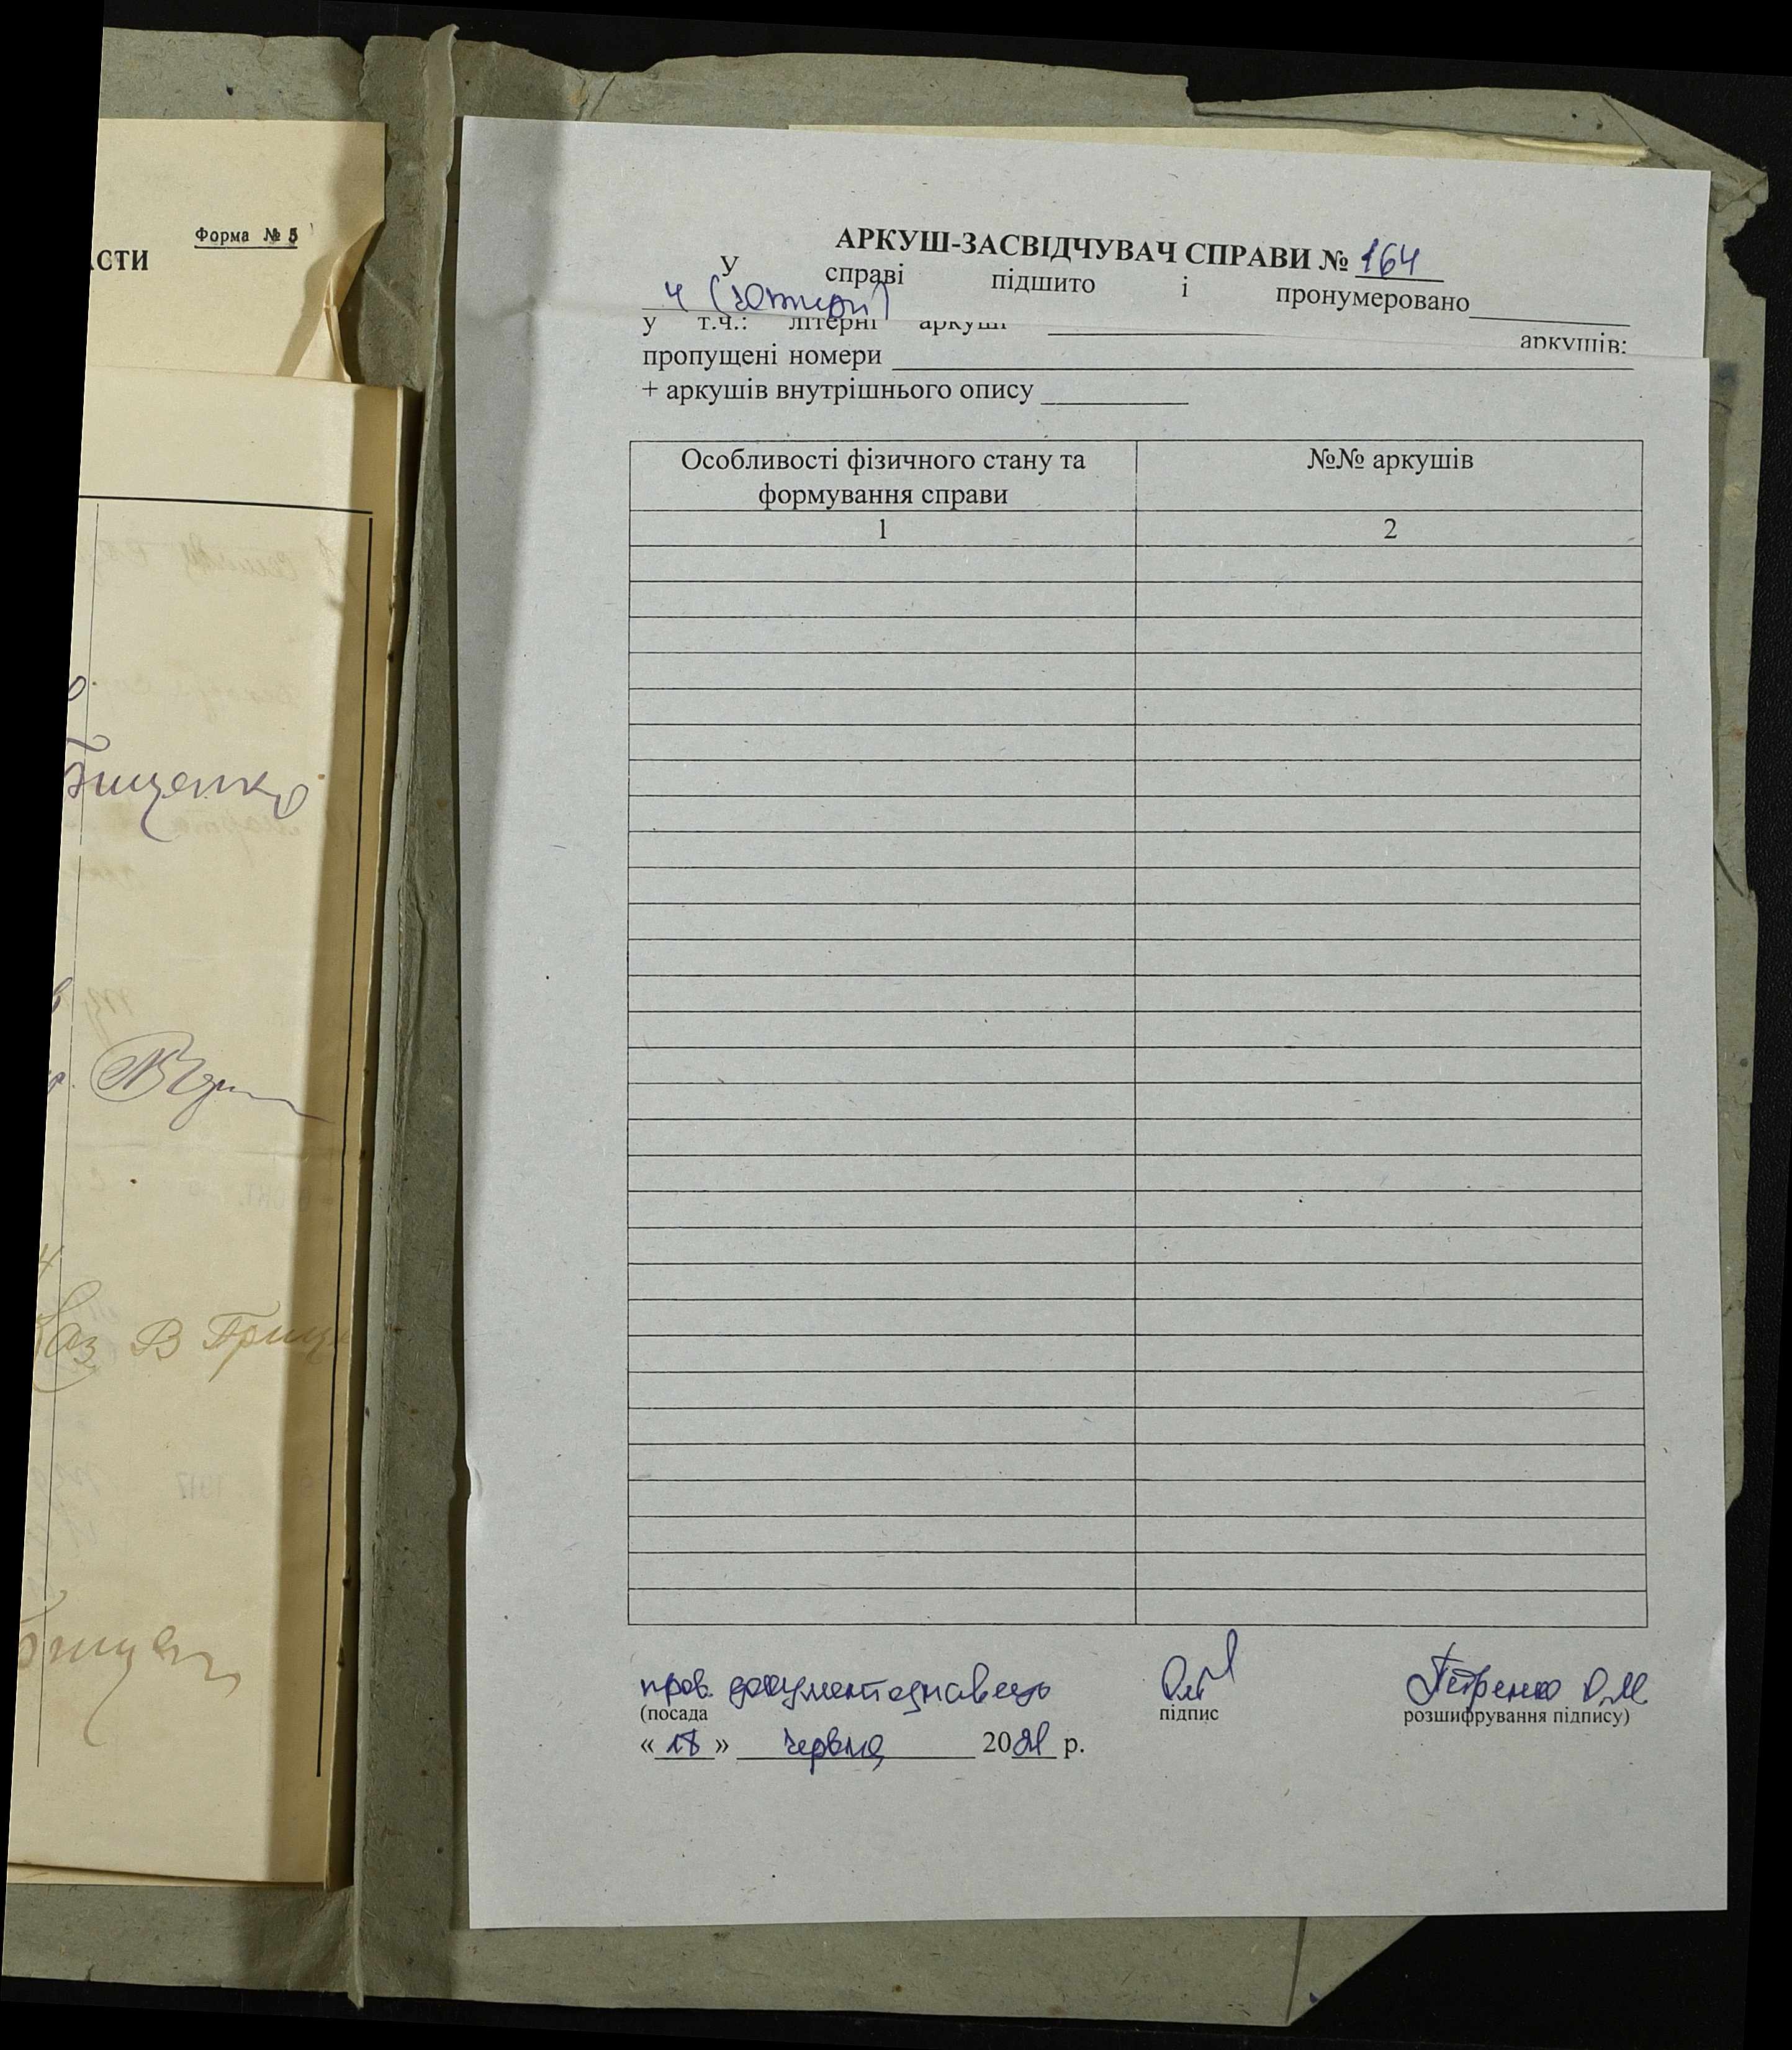 Форма № 5
АСТИ
бищенко
В Грищ
АРКУШ-ЗАСВІДЧУВАЧ СПРАВИ № 164
У справі підшито і пронумеровано
4 (чотири)
у т.ч.: літерні аркуші аркушів:
пропущені номери
+ аркушів внутрішнього опису
Особливості фізичного стану та №№ аркушів
формування справи
1 2
пров. документознавець Петренко О.М.
(посада підпис розшифрування підпису)
« 18 » червня 2021 р.